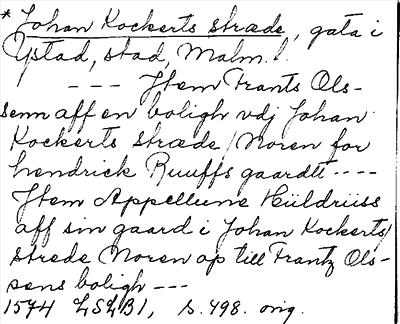 * Johan Kockerts stræde, gata i
Ystad, stad, Malm. l.
--- Jtem Frants Ols-
senn aff en boligh vdj Johan
Kockerts stræde / Noren for
hendrick Ruuffs gaardtt ----
Jtem Appellune Hüldrüss
aff sin gaard i Johan Kockerts/
strede Noren op till Frantz Ols-
sens boligh ---
1574 LSLB1, s. 498. orig.